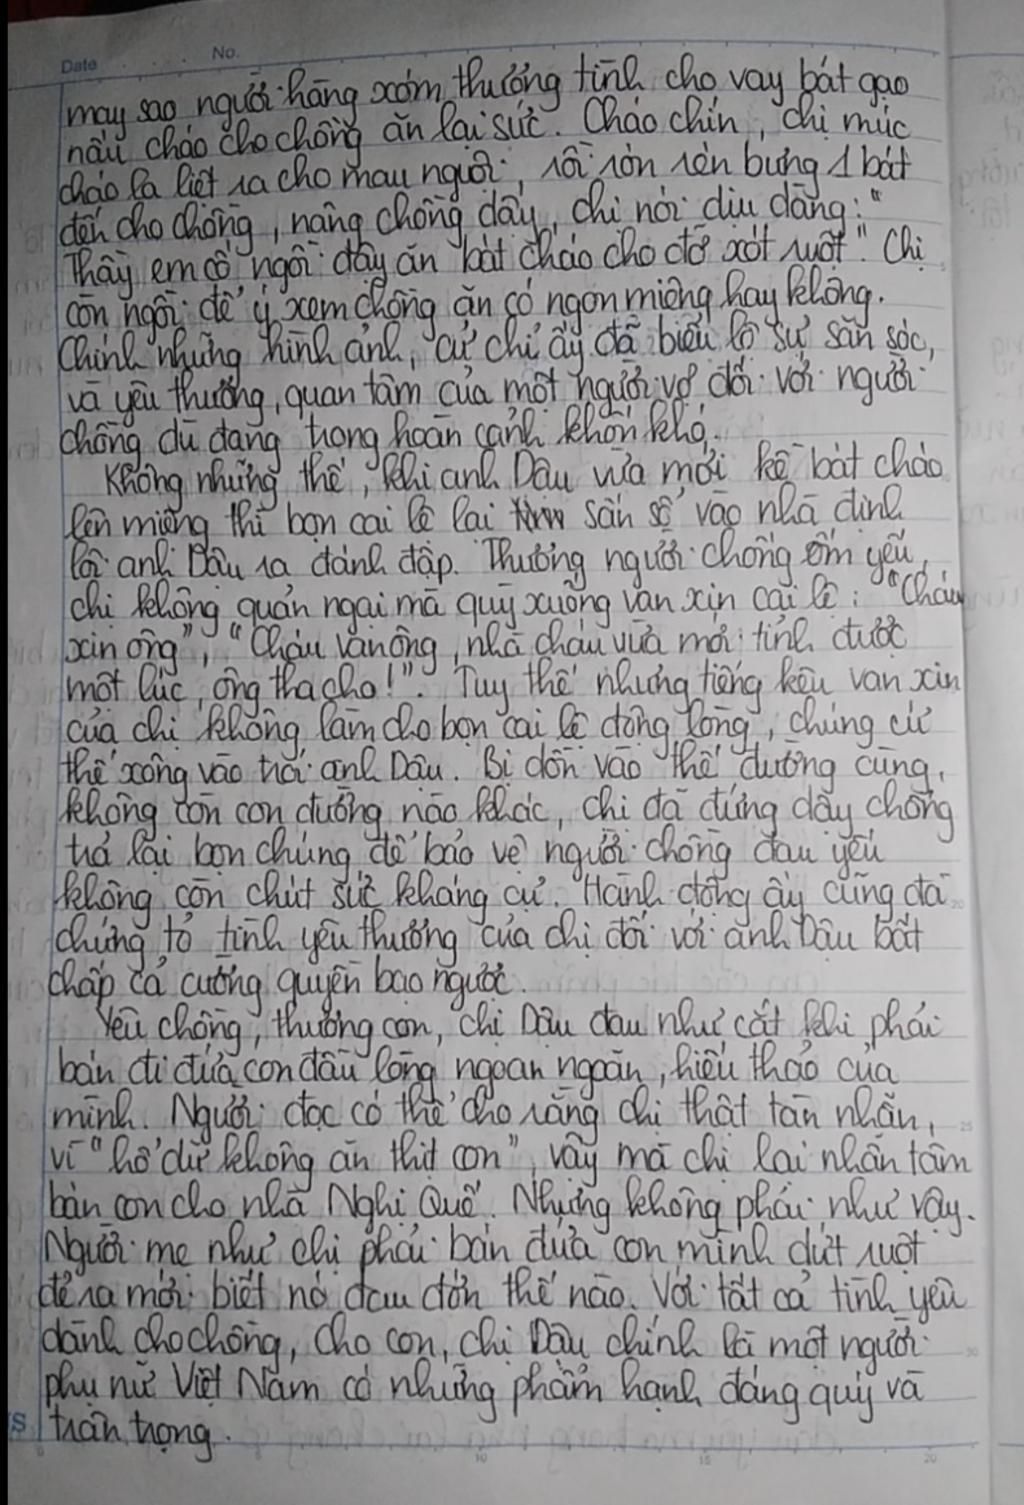 Date No.
may sao người hàng xóm thương tình cho vay bát gạo
nấu cháo cho chồng ăn lại sức. Cháo chín, chị múc
cháo la liệt ra cho mau nguội, rồi rón rén bưng 1 bát
đến cho chồng, nâng chồng dậy, chị nói dịu dàng: "
Thầy em cố ngồi dậy ăn bát cháo cho đỡ xót ruột". Chị
còn ngồi để ý xem chồng ăn có ngon miệng hay không.
Chính những hình ảnh, cử chỉ ấy đã biểu lộ sự săn sóc,
và yêu thương, quan tâm của một người vợ đối với người
chồng dù đang trong hoàn cảnh khốn khó.
Không những thế, khi anh Dậu vừa mới kề bát cháo
lên miệng thì bọn cai lệ lại sấn sổ vào nhà định
lôi anh Dậu ra đánh đập. Thương người chồng ốm yếu,
chị không quản ngại mà quỳ xuống van xin cai lệ: "Cháu
xin ông", "Cháu van ông, nhà cháu vừa mới tỉnh được
một lúc, ông tha cho!". Tuy thế nhưng tiếng kêu van xin
của chị không làm cho bọn cai lệ động lòng, chúng cứ
thế xông vào trói anh Dậu. Bị dồn vào thế đường cùng,
không còn con đường nào khác, chị đã đứng dậy chống
trả lại bọn chúng để bảo vệ người chồng đau yếu
không còn chút sức kháng cự. Hành động ấy cũng đã
chứng tỏ tình yêu thương của chị đối với anh Dậu bất
chấp cả cường quyền bạo ngược.
Yêu chồng, thương con, chị Dậu đau như cắt khi phải
bán đi đứa con đầu lòng ngoan ngoãn, hiếu thảo của
mình. Người đọc có thể cho rằng chị thật tàn nhẫn,
vì "hổ dữ không ăn thịt con", vậy mà chị lại nhẫn tâm
bán con cho nhà Nghị Quế. Nhưng không phải như vậy.
Người mẹ như chị phải bán đứa con mình dứt ruột
đẻ ra mới biết nó đau đớn thế nào. Với tất cả tình yêu
dành cho chồng, cho con, chị Dậu chính là một người
phụ nữ Việt Nam có những phẩm hạnh đáng quý và
trân trọng.
10 15 20